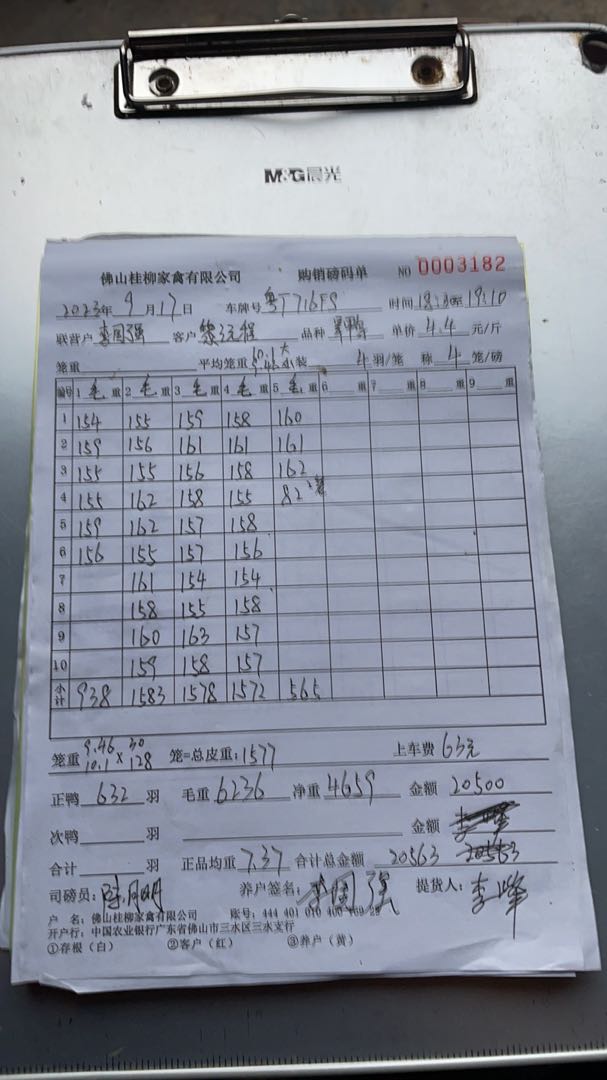 M&G晨光
佛山桂柳家禽有限公司 购销磅码单 NO 0003182
2023年 9月17日 车牌号 粤T716FS 时间 18:30至19:10
联营户 李国强 客户 品种 单价 4.4 元/斤
笼重 平均笼重 4 羽/笼 称 4 笼/磅
编号 1 毛 重 2 毛 重 3 毛 重 4 毛 重 5 毛 重 6 重 7 重 8 重 9 重
1 154 155 159 158 160
2 159 156 161 161 161
3 155 155 156 158 162
4 155 162 158 155 82
5 159 162 157 158
6 156 155 157 156
7 161 154 154
8 158 155 158
9 160 163 157
10 159 158 157
小计 938 1583 1578 1572 565
9.46 30
笼重 10.1 × 128 笼=总皮重: 1577 上车费 63元
正鸭 632 羽 毛重 6236 净重 4659 金额 20500
次鸭 羽 金额
合计 羽 正品均重 7.37 合计总金额 20563 20563
司磅员: 养户签名: 李国强 提货人: 李峰
户 名: 佛山桂柳家禽有限公司 账号: 444 401 010 400 469 28
开户行: 中国农业银行广东省佛山市三水区三水支行
①存根（白） ②客户（红） ③养户（黄）